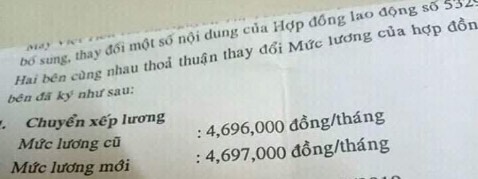 bổ sung, thay đổi một số nội dung của Hợp đồng lao động số 532
Hai bên cùng nhau thoả thuận thay đổi Mức lương của hợp đồn
bên đã ký như sau:
. Chuyển xếp lương
Mức lương cũ : 4,696,000 đồng/tháng
Mức lương mới : 4,697,000 đồng/tháng